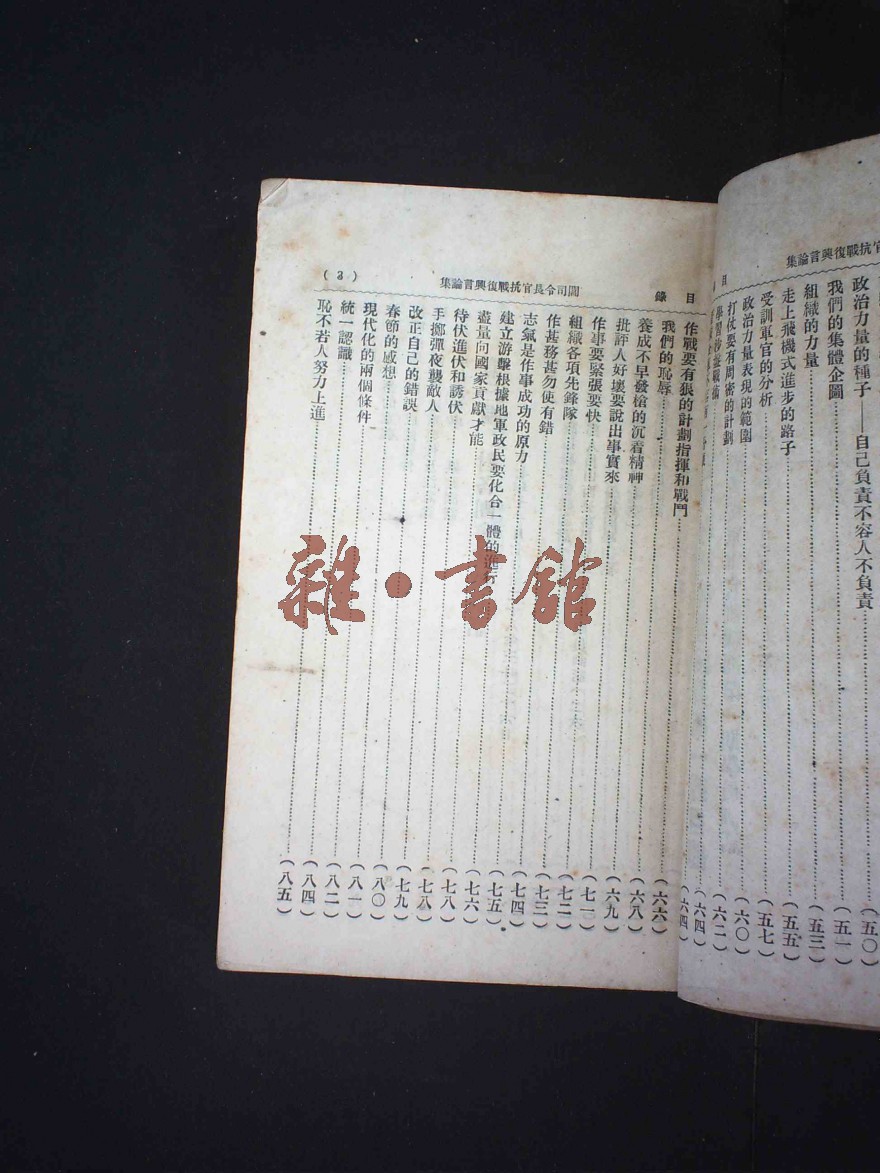 抗戰復興言論集
目
政治力量的種子——自己負責不容人不負責(五〇)
我們的集體企圖(五一)
組織的力量(五三)
走上飛機式進步的路子(五五)
受訓軍官的分析(五七)
政治力量表現的範圍(六〇)
打仗要有周密的計劃(六二)
學習(六四)
(六四)
目 錄
閻司令長官抗戰復興言論集
(3)
作戰要有狠的計劃指揮和戰鬥(六六)
我們的恥辱(六八)
養成不早發槍的沉着精神(六九)
批評人好壞要說出事實來(七一)
作事要緊張要快(七二)
組織各項先鋒隊(七三)
作甚務甚勿使有錯(七四)
志氣是作事成功的原力(七五)
建立游擊根據地軍政民要化合一體的進行(七六)
盡量向國家貢獻才能(七八)
待伏進伏和誘伏(七八)
手擲彈夜襲敵人(七九)
改正自己的錯誤(八〇)
春節的感想(八一)
現代化的兩個條件(八二)
統一認識(八四)
恥不若人努力上進(八五)
雜·書館